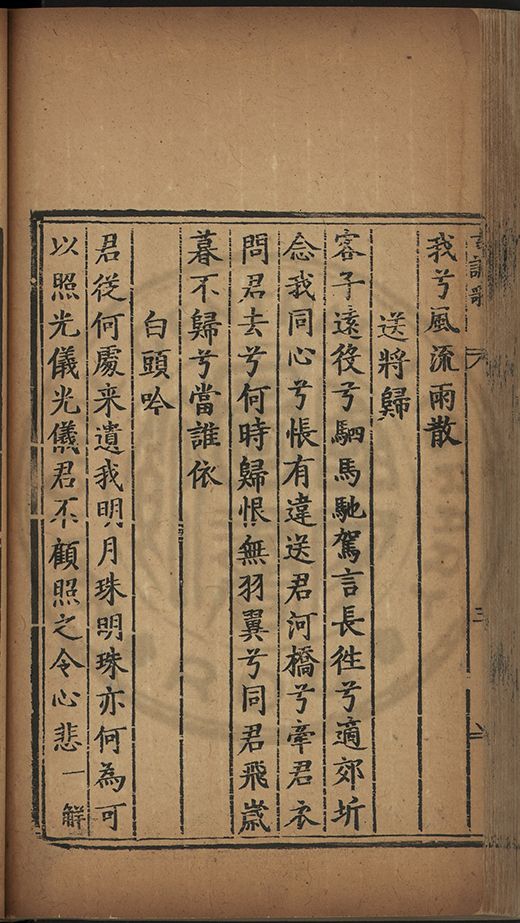 我兮風流雨散
送將歸
客子遠役兮駟馬馳駕言長徃兮適郊圻
念我同心兮悵有違送君河橋兮牽君衣
問君去兮何時歸恨無羽翼兮同君飛歲
暮不歸兮當誰依
白頭吟
君從何處来遺我明月珠明珠亦何為可
以照光儀光儀君不顧照之令心悲一解